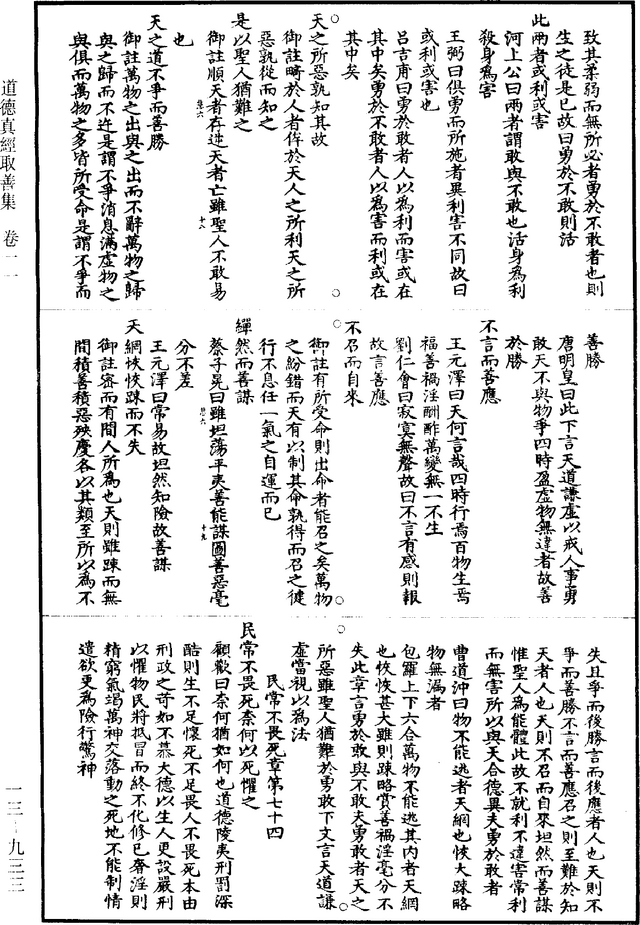 道德真經取善集　卷一二
一三－九三三
致其柔弱而無所必者勇於不敢者也則
生之徒是已故曰勇於不敢則活
此兩者或利或害
河上公曰兩者謂敢與不敢也活身爲利
殺身爲害
王弼曰俱勇而所施者異利害不同故曰
或利或害也
呂吉甫曰勇於敢者人以爲利而害或在
其中矣勇於不敢者人以爲害而利或在
其中矣
天之所惡孰知其故
御註畸於人者侔於天人之所利天之所
惡孰從而知之
是以聖人猶難之
御註順天者存逆天者亡雖聖人不敢易
也
天之道不爭而善勝
御註萬物之出與之出而不辭萬物之歸
與之歸而不迕是謂不爭消息滿虛物之
與俱而萬物之多皆所受命是謂不爭而
善勝
唐明皇曰此下言天道謙虛以戒人事勇
敢天不與物爭四時盈虛物無違者故善
於勝
不言而善應
王元澤曰天何言哉四時行焉百物生焉
福善禍淫酬酢萬變無一不生
劉仁會曰寂寞無聲故曰不言有感則報
故言善應
不召而自來
御註有所受命則出命者能召之矣萬物
之紛錯而天有以制其命孰得而召之健
行不息任一氣之自運而已
繟然而善謀
蔡子晃曰雖坦蕩平夷善能謀圖善惡毫
分不差
王元澤曰常易故坦然知險故善謀
天網恢恢踈而不失
御註密而有間人所爲也天則雖踈而無
間積善積惡殃慶各以其類至所以爲不
失且爭而後勝言而後應者人也天則不
爭而善勝不言而善應召之則至難於知
天者人也天則不召而自來坦然而善謀
惟聖人爲能體此故不就利不違害常利
而無害所以與天合德異夫勇於敢者
曹道沖曰物不能逃者天網也恢大踈略
物無漏者
包羅上下六合萬物不能逃其内者天網
也恢恢甚大雖則踈略賞善禍淫毫分不
失此章言勇於敢與不敢夫勇敢者天之
所惡雖聖人猶難於勇敢下文言天道謙
虛當視以爲法
民常不畏死章第七十四
民常不畏死奈何以死懼之
顧歡曰奈何猶如何也道德陵夷刑罰深
酷則生不足懷死不足畏人不畏死本由
刑政之苛如不慕大德以生人更設嚴刑
以懼物民將抵冒而終不化修已奢淫則
精窮氣竭萬神交落動之死地不能制情
遣欲更爲險行驚神